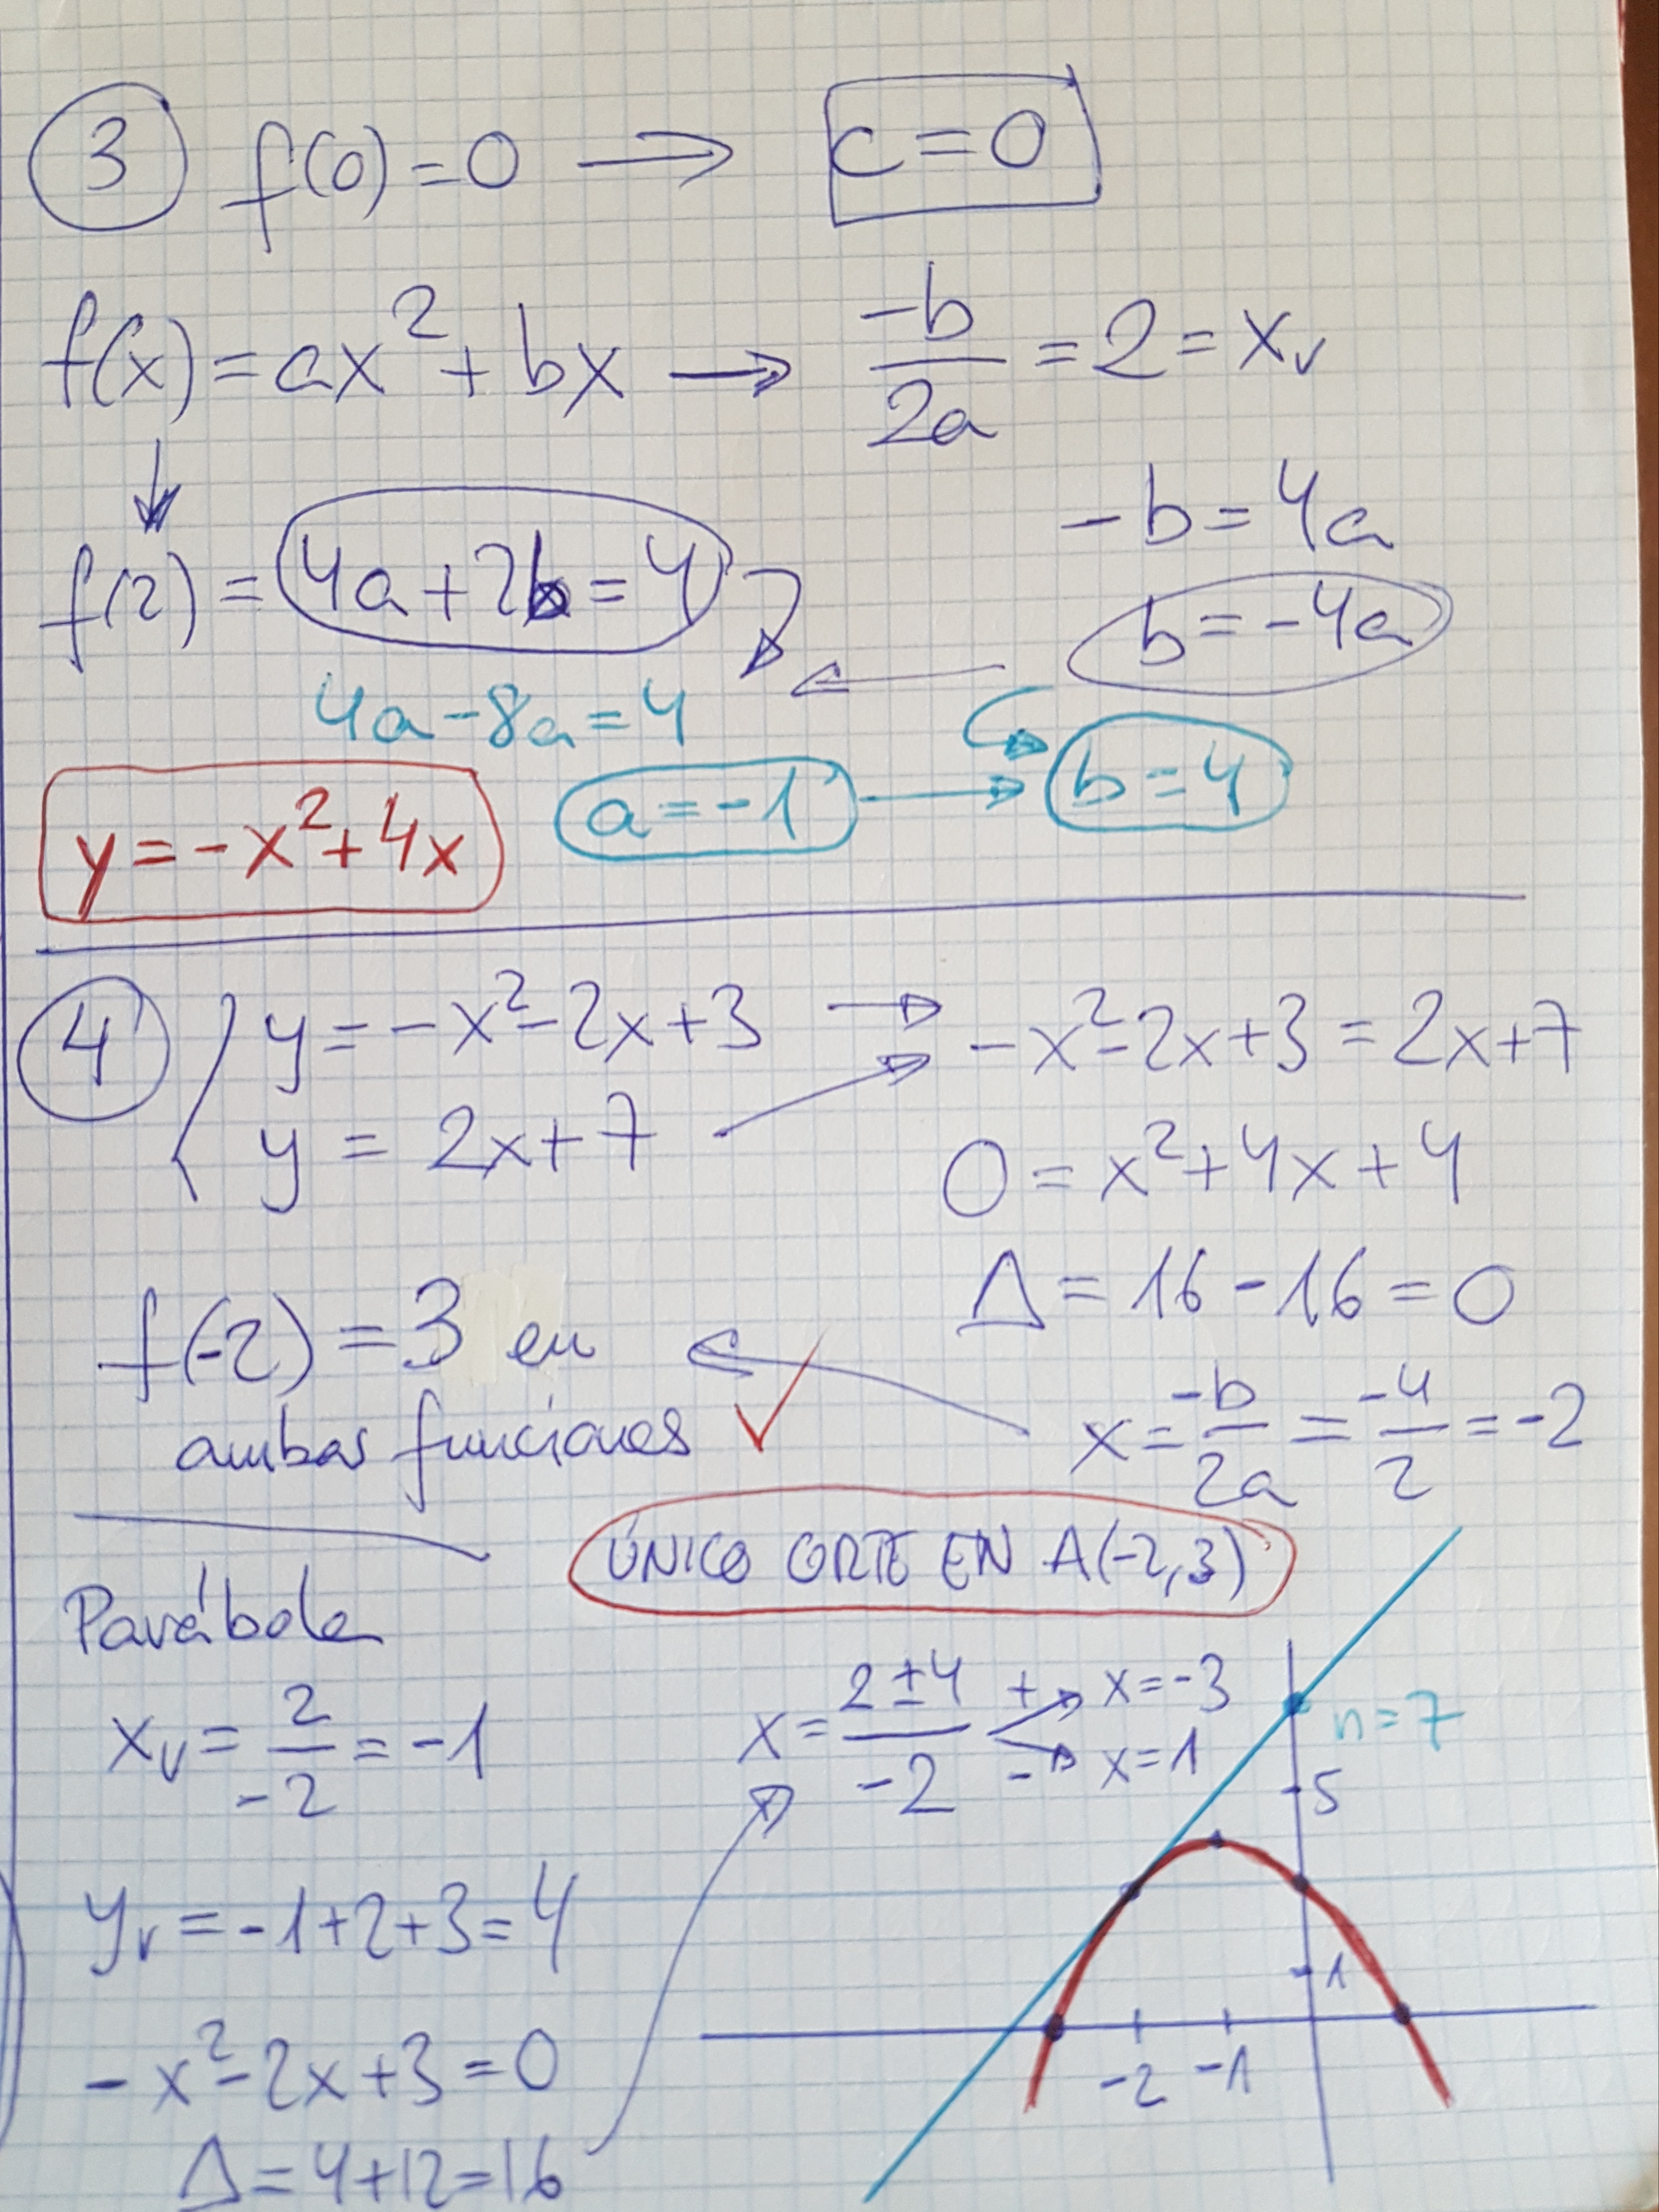 3 f(0)=0 → c=0
f(x)=ax²+bx → -b/2a = 2 = xv
-b=4a
f(2)=4a+2b=4
b=-4a
4a-8a=4
y=-x²+4x a=-1 → b=4
4 { y=-x²-2x+3 → -x²-2x+3=2x+7
y=2x+7
0=x²+4x+4
Δ=16-16=0
f(-2)=3 en
ambas funciones ✓
x=-b/2a=-4/2=-2
ÚNICO CORTE EN A(-2,3)
Parábola
xv=2/-2=-1
x=2±4/-2 + → x=-3
- → x=1
n=7
5
yv=-1+2+3=4
1
-2 -1
-x²-2x+3=0
Δ=4+12=16